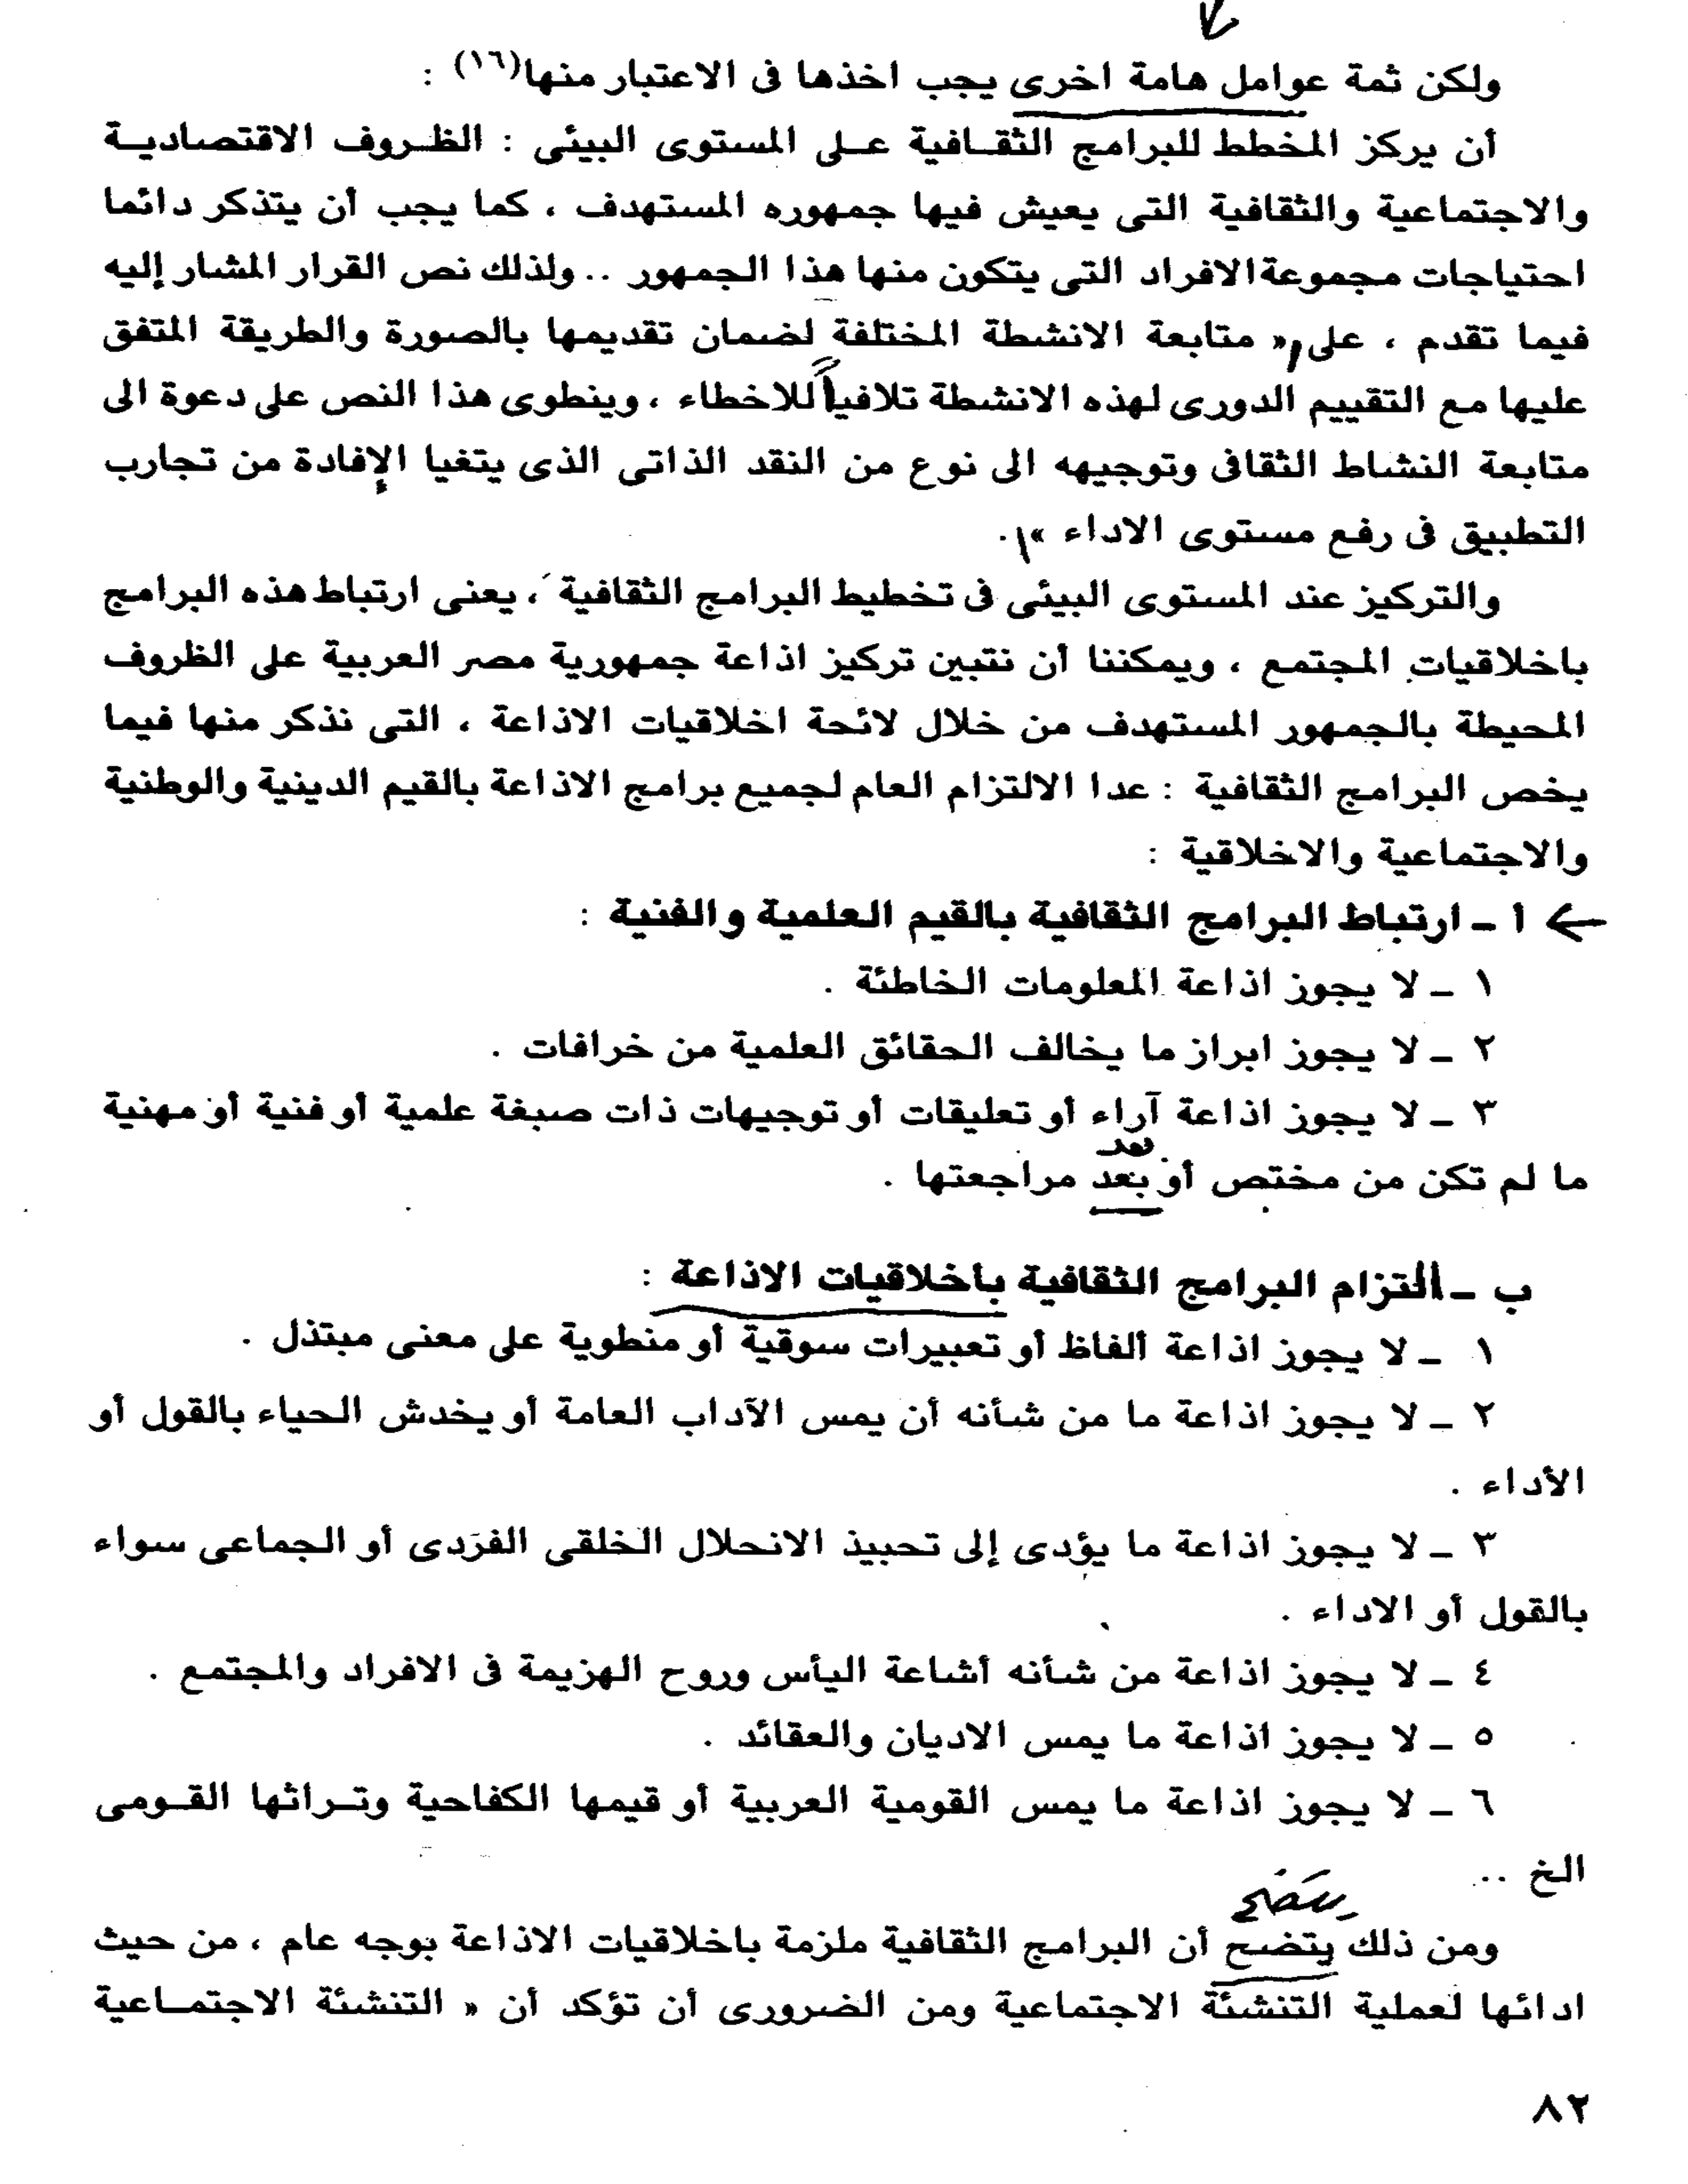 ولكن ثمة عوامل هامة اخرى يجب اخذها فى الاعتبار منها(١٦) :
أن يركز المخطط للبرامج الثقافية على المستوى البيئى : الظروف الاقتصادية
والاجتماعية والثقافية التى يعيش فيها جمهوره المستهدف ، كما يجب أن يتذكر دائما
احتياجات مجموعة الافراد التى يتكون منها هذا الجمهور .. ولذلك نص القرار المشار إليه
فيما تقدم ، على « متابعة الانشطة المختلفة لضمان تقديمها بالصورة والطريقة المتفق
عليها مع التقييم الدورى لهذه الانشطة تلافياً للاخطاء ، وينطوى هذا النص على دعوة الى
متابعة النشاط الثقافى وتوجيهه الى نوع من النقد الذاتى الذى يتغيا الإفادة من تجارب
التطبيق فى رفع مستوى الاداء » .
والتركيز عند المستوى البيئى فى تخطيط البرامج الثقافية ، يعنى ارتباط هذه البرامج
باخلاقيات المجتمع ، ويمكننا أن نتبين تركيز اذاعة جمهورية مصر العربية على الظروف
المحيطة بالجمهور المستهدف من خلال لائحة اخلاقيات الاذاعة ، التى نذكر منها فيما
يخص البرامج الثقافية : عدا الالتزام العام لجميع برامج الاذاعة بالقيم الدينية والوطنية
والاجتماعية والاخلاقية :
أ ـ ارتباط البرامج الثقافية بالقيم العلمية والفنية :
١ ـ لا يجوز اذاعة المعلومات الخاطئة .
٢ ـ لا يجوز ابراز ما يخالف الحقائق العلمية من خرافات .
٣ ـ لا يجوز اذاعة آراء أو تعليقات أو توجيهات ذات صبغة علمية أو فنية أو مهنية
بعد
ما لم تكن من مختص أو بعد مراجعتها .
ب ـ التزام البرامج الثقافية باخلاقيات الاذاعة :
١ ـ لا يجوز اذاعة ألفاظ أو تعبيرات سوقية أو منطوية على معنى مبتذل .
٢ ـ لا يجوز اذاعة ما من شأنه أن يمس الآداب العامة أو يخدش الحياء بالقول أو
الأداء .
٣ ـ لا يجوز اذاعة ما يؤدى إلى تحبيذ الانحلال الخلقى الفردى أو الجماعى سواء
بالقول أو الاداء .
٤ ـ لا يجوز اذاعة من شأنه أشاعة اليأس وروح الهزيمة فى الافراد والمجتمع .
٥ ـ لا يجوز اذاعة ما يمس الاديان والعقائد .
٦ ـ لا يجوز اذاعة ما يمس القومية العربية أو قيمها الكفاحية وتراثها القومى
الخ ..
يتضح
ومن ذلك يتضح أن البرامج الثقافية ملزمة باخلاقيات الاذاعة بوجه عام ، من حيث
ادائها لعملية التنشئة الاجتماعية ومن الضرورى أن تؤكد أن « التنشئة الاجتماعية
٨٢